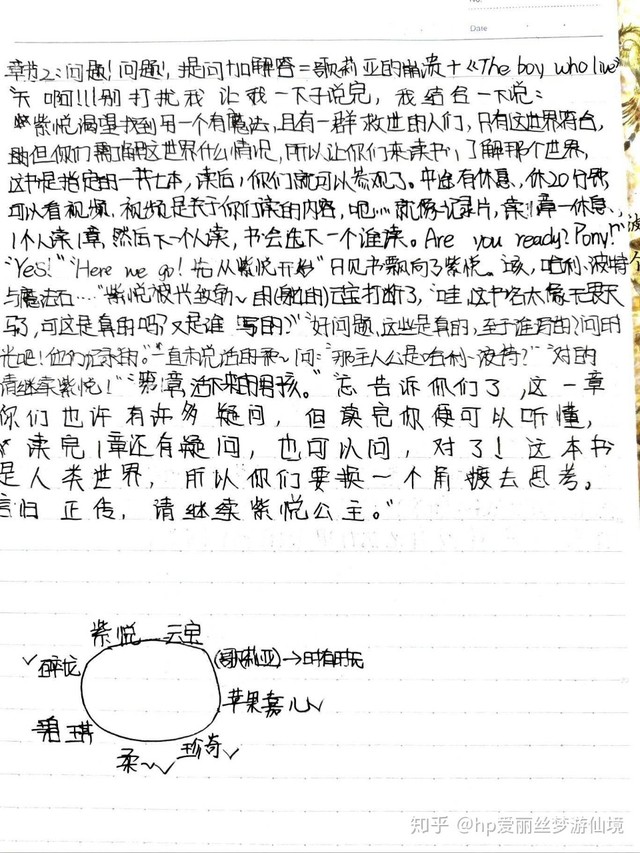 No.
Date
章节2:问题!问题!,提问加解答=歌莉亚的崩溃+《The boy who live》
天啊!!!别打扰我让我一下子说完,我结合一下说:
"紫悦渴望找到另一个有魔法,且有一群救世的人们,只有这世界符合,
但你们需了解这世界什么情况,所以让你们来读书,了解那个世界,
这书是指定的一共七本,读后,你们就可以参观了。中途有休息,休20分钟
可以看视频,视频是关于你们读的内容,吧…就像记录片,读1章一休息、
1个人读1章,然后下一个人读,书会选下一个谁读。Are you ready? Pony!"
"Yes!""Here we go!先从紫悦开始"只见书飘向了紫悦。"咳,哈利·波特
与魔法石…"紫悦很兴致勃~由(射的)云宝打断了,"哇,这书名太像无畏天
马了,可这是真的吗?又是谁写的?""好问题,这些是真的,至于谁写的?问时
光吧!他们记录的。"一直未说话的柔~问:"那主人公是哈利·波特?""对的
请继续紫悦!""第1章,活下来的男孩。"忘告诉你们了,这一章
你们也许有许多疑问,但读完你便可以听懂,
读完1章还有疑问,也可以问,对了!这本书
是人类世界,所以你们要换一个角度去思考。
言归正传,请继续紫悦公主。"
紫悦 云宝
✓碎龙 (歌莉亚)→时有时无
苹果嘉儿✓
瑞琪
柔~✓ 珍奇✓
知乎 @hp爱丽丝梦游仙境